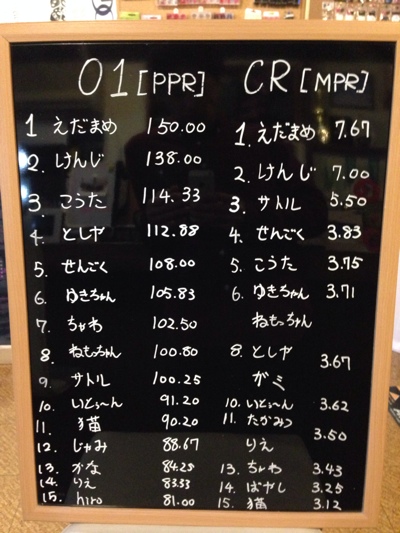 01 [PPR]
1 えだまめ 150.00
2. けんじ 138.00
3. こうた 114.33
4. としや 112.88
5. せんごく 108.00
6. ゆきちゃん 105.83
7. ちゃわ 102.50
8. ねもっちゃん 100.80
9. サトル 100.25
10. いとぅ〜ん 91.20
11. 猫 90.20
12. じゃみ 88.67
13. かな 84.25
14. りえ 83.33
15. hiro 81.00
CR [MPR]
1. えだまめ 7.67
2. けんじ 7.00
3. サトル 5.50
4. せんごく 3.83
5. こうた 3.75
6. ゆきちゃん 3.71
ねもっちゃん
8. としや 3.67
ガミ
10. いとぅ〜ん 3.62
11. たかみつ 3.50
りえ
13. ちゃわ 3.43
14. ばやし 3.25
15. 猫 3.12